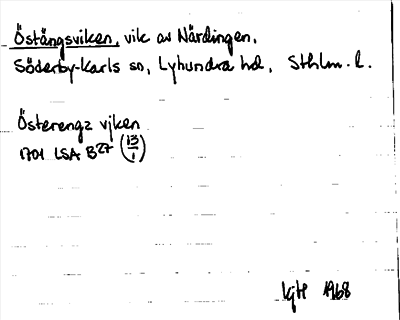 Östängsviken, vik av Närdingen,
Söderby-Karls sn, Lyhundra hd, Sthlm. l.
Österengz vjken
1701 LSA B27 (13/1)
1968